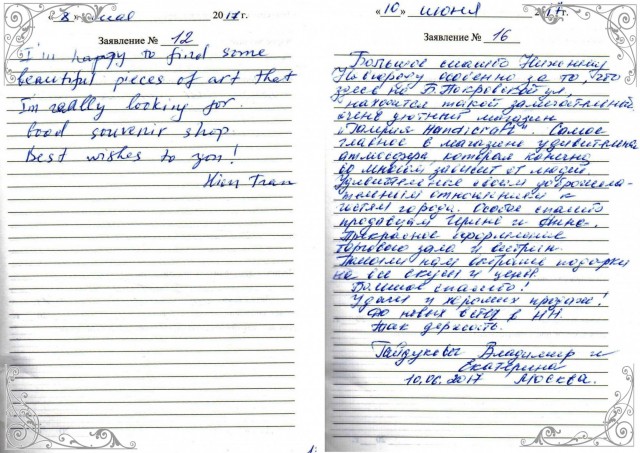 « 8 » мая 2017г.
Заявление № 12
I'm happy to find some
beautiful pieces of art that
I'm really looking for.
Good souvenir shop.
Best wishes to you!
Hien Tran
« 10 » июня 17г.
Заявление № 16
Большое спасибо Нижнему
Новгороду особенно за то, что
здесь на Б. Покровской ул,
находится такой замечательный
очень уютный магазин
"Галерия Handicraft". Самое
главное в магазине удивительна
атмосфера, которая конечно
во многом зависит от людей.
Удивительные своим доброжела-
тельным отношением к
гостям города. Особое спасибо
продавцам Ирине и
Прекрасное оформление
торгового зала и витрин.
Помогли нам выбрать подарки
на все вкусы и цены.
Большое спасибо!
Удачи и хороших продаж!
До новых встреч в НН.
Так держать.
Гайдуковы Владимир и
Екатерина
10.06.2017 Москва.